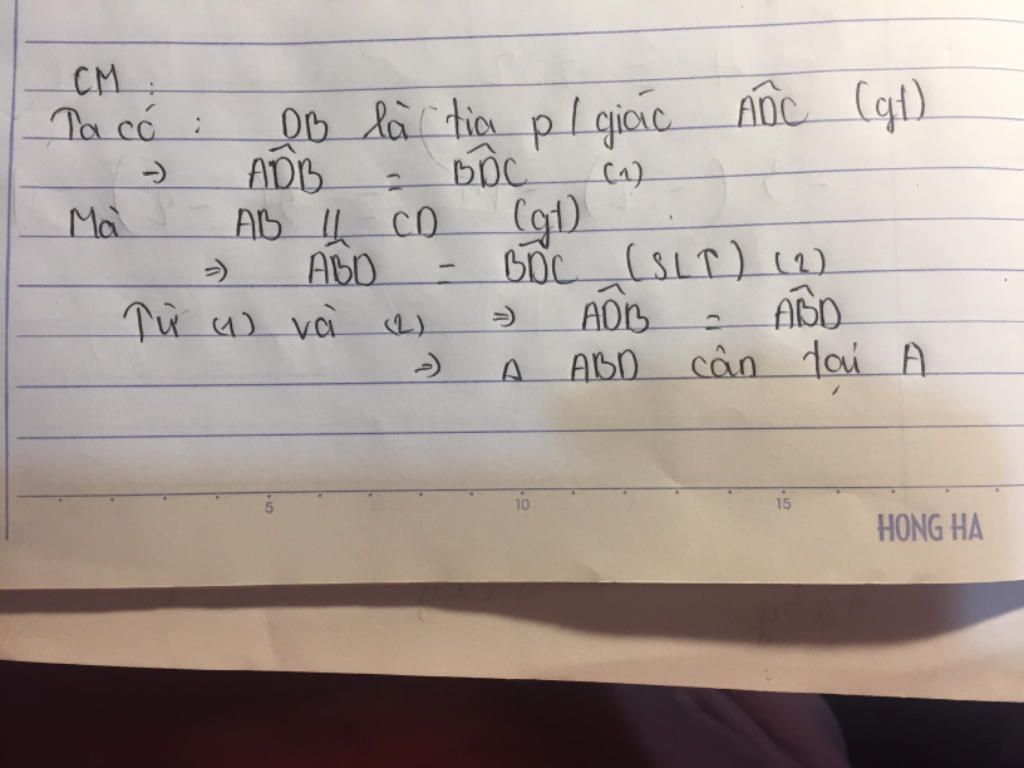 CM :
Ta có : DB là tia p/giác ADC (gt)
→ ADB = BDC (1)
Mà AB // CD (gt)
⇒ ABD = BDC (SLT) (2)
Từ (1) và (2) ⇒ ADB = ABD
⇒ Δ ABD cân tại A
5 10 15
HONG HA